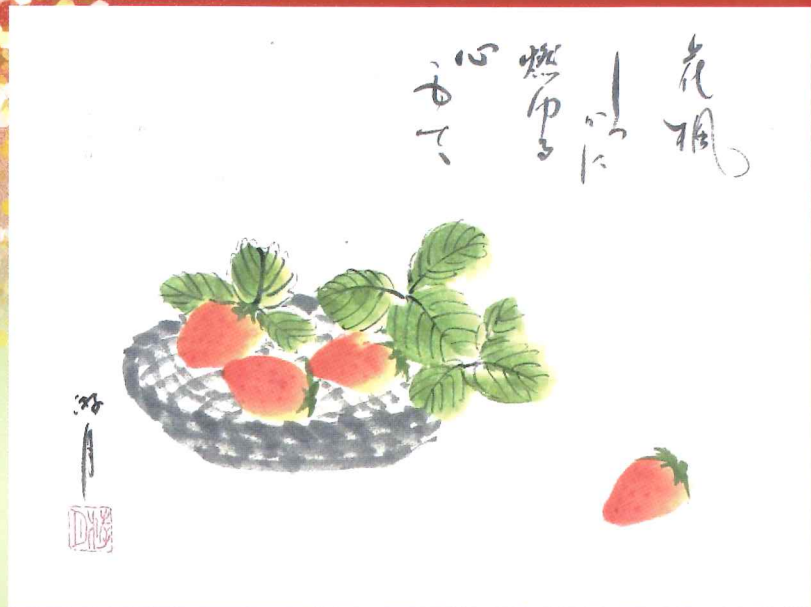 花楓
しつかに
燃ゆる
心
もて
游月